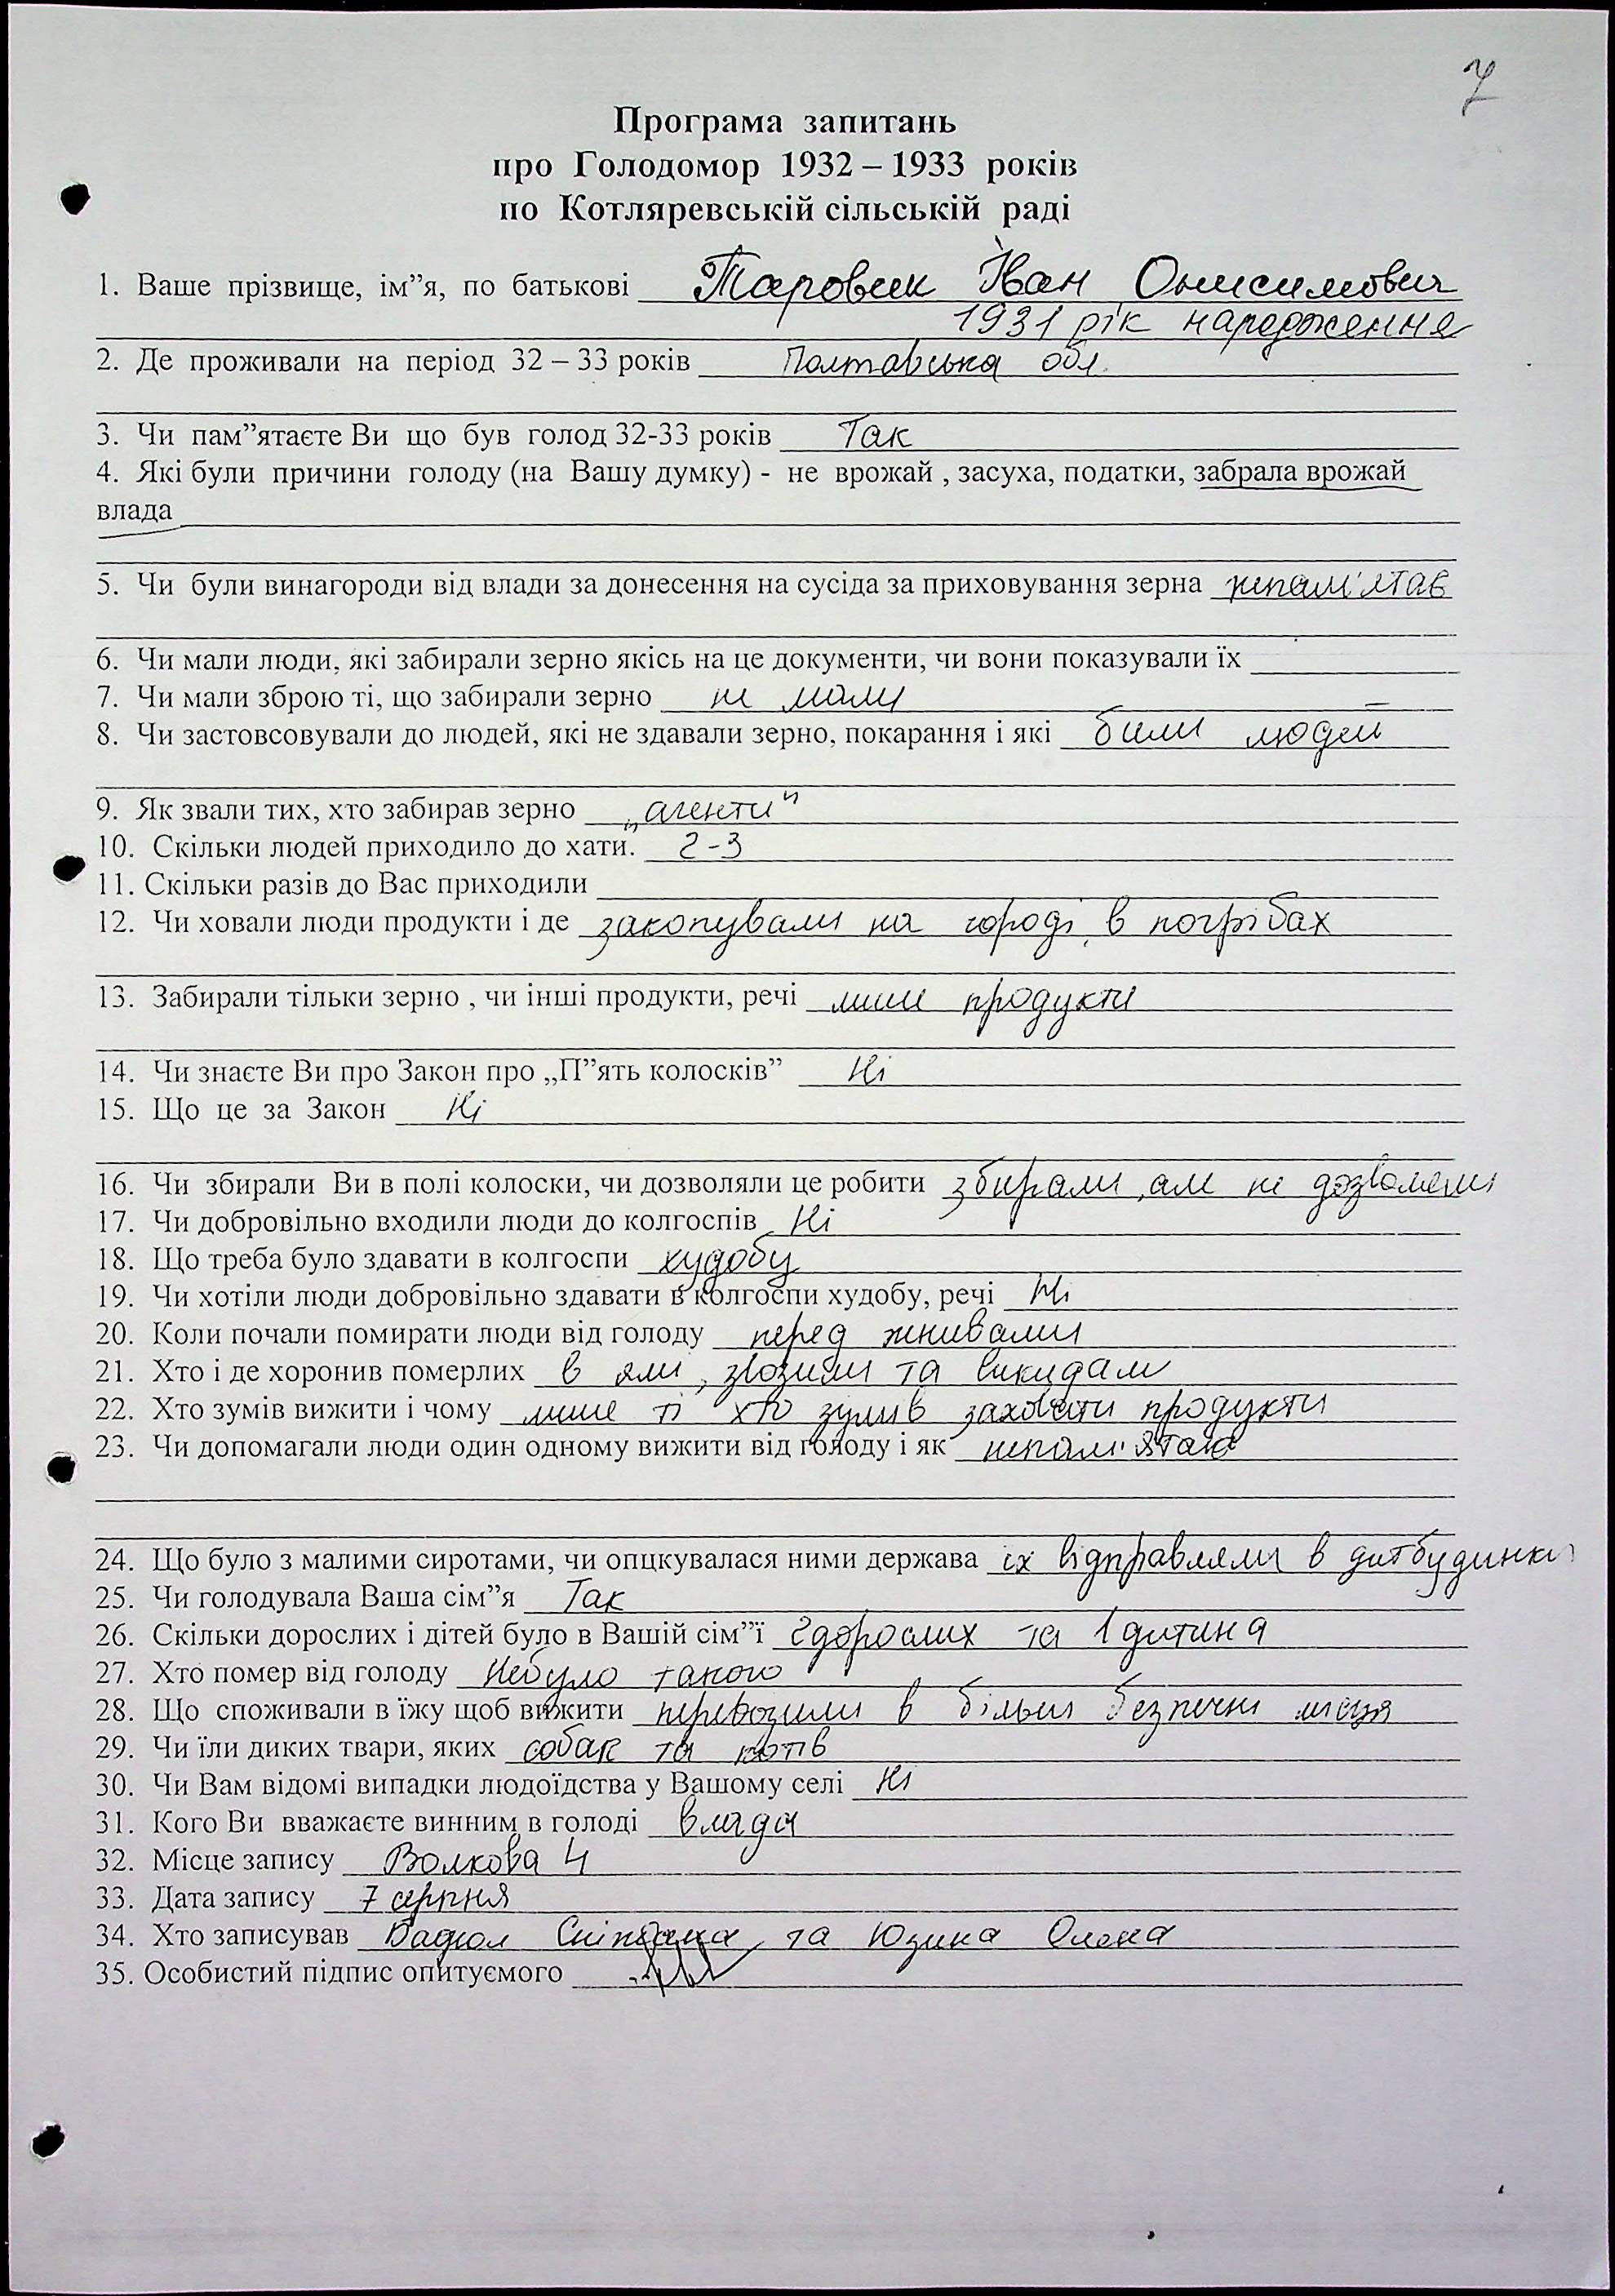 7
Програма запитань
про Голодомор 1932 – 1933 років
по Котляревській сільській раді
1. Ваше прізвище, ім”я, по батькові Таровик Іван Онисимович
1931 рік народження
2. Де проживали на період 32 – 33 років Полтавська обл.
3. Чи пам”ятаєте Ви що був голод 32-33 років Так
4. Які були причини голоду (на Вашу думку) - не врожай , засуха, податки, забрала врожай
влада
5. Чи були винагороди від влади за донесення на сусіда за приховування зерна непам'ятає
6. Чи мали люди, які забирали зерно якісь на це документи, чи вони показували їх
7. Чи мали зброю ті, що забирали зерно не мали
8. Чи застовсовували до людей, які не здавали зерно, покарання і які били людей
9. Як звали тих, хто забирав зерно „агенти“
10. Скільки людей приходило до хати. 2-3
11. Скільки разів до Вас приходили
12. Чи ховали люди продукти і де закопували на городі, в погрібах
13. Забирали тільки зерно , чи інші продукти, речі лише продукти
14. Чи знаєте Ви про Закон про „П”ять колосків” Ні
15. Що це за Закон Ні
16. Чи збирали Ви в полі колоски, чи дозволяли це робити збирали, але не дозволяли
17. Чи добровільно входили люди до колгоспів Ні
18. Що треба було здавати в колгоспи худобу
19. Чи хотіли люди добровільно здавати в колгоспи худобу, речі Ні
20. Коли почали помирати люди від голоду перед жнивами
21. Хто і де хоронив померлих в ями, звозили та викидали
22. Хто зумів вижити і чому лише ті хто зумів заховати продукти
23. Чи допомагали люди один одному вижити від голоду і як непам'ятаю
24. Що було з малими сиротами, чи опцкувалася ними держава їх відправляли в дитбудинки
25. Чи голодувала Ваша сім”я Так
26. Скільки дорослих і дітей було в Вашій сім”ї 2 дорослих та 1 дитина
27. Хто помер від голоду Небуло такого
28. Що споживали в їжу щоб вижити перевозили в більш безпечні місця
29. Чи їли диких твари, яких собак та котів
30. Чи Вам відомі випадки людоїдства у Вашому селі Ні
31. Кого Ви вважаєте винним в голоді влада
32. Місце запису Волкова 4
33. Дата запису 7 серпня
34. Хто записував та Юзина Олена
35. Особистий підпис опитуємого